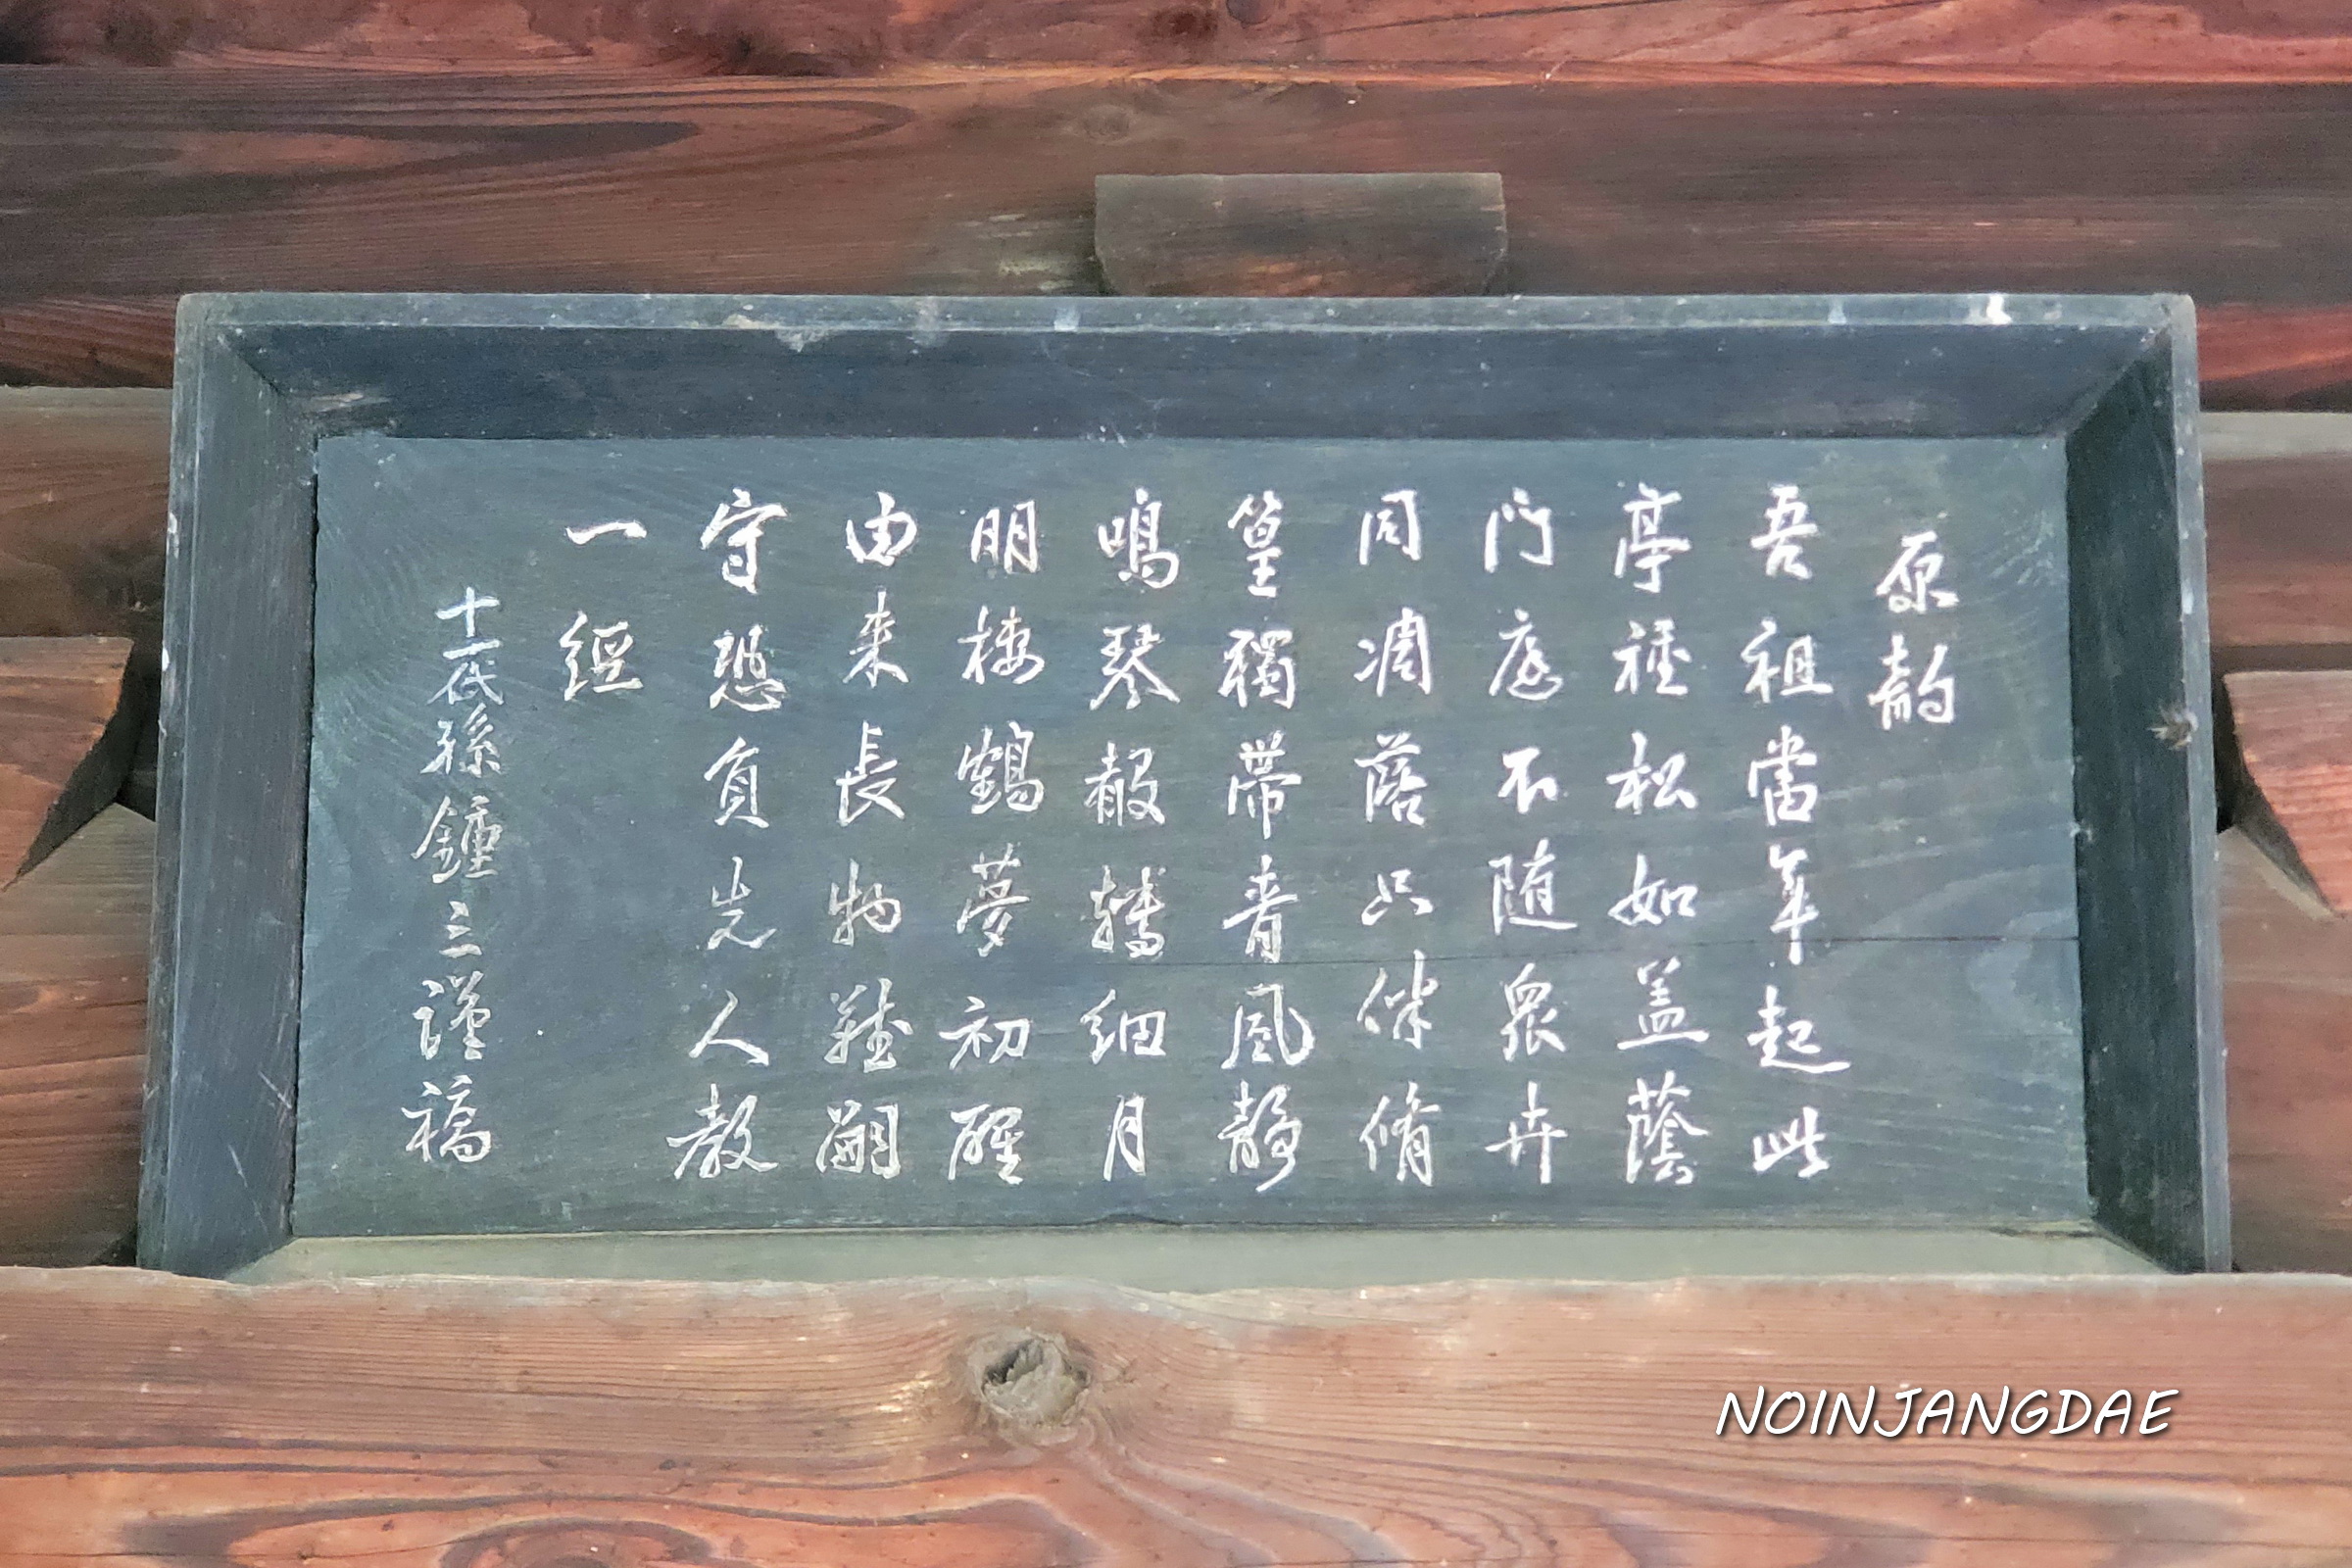 原韵
吾祖當年起此
亭種松如盖蔭
門庭不随衆卉
同凋落只伴脩
篁獨帶青風静
鳴琴聲轉細月
明棲鶴夢初醒
由来長物難嗣
守恐負先人教
一經
十一代孫鍾三謹稿
NOINJANGDAE